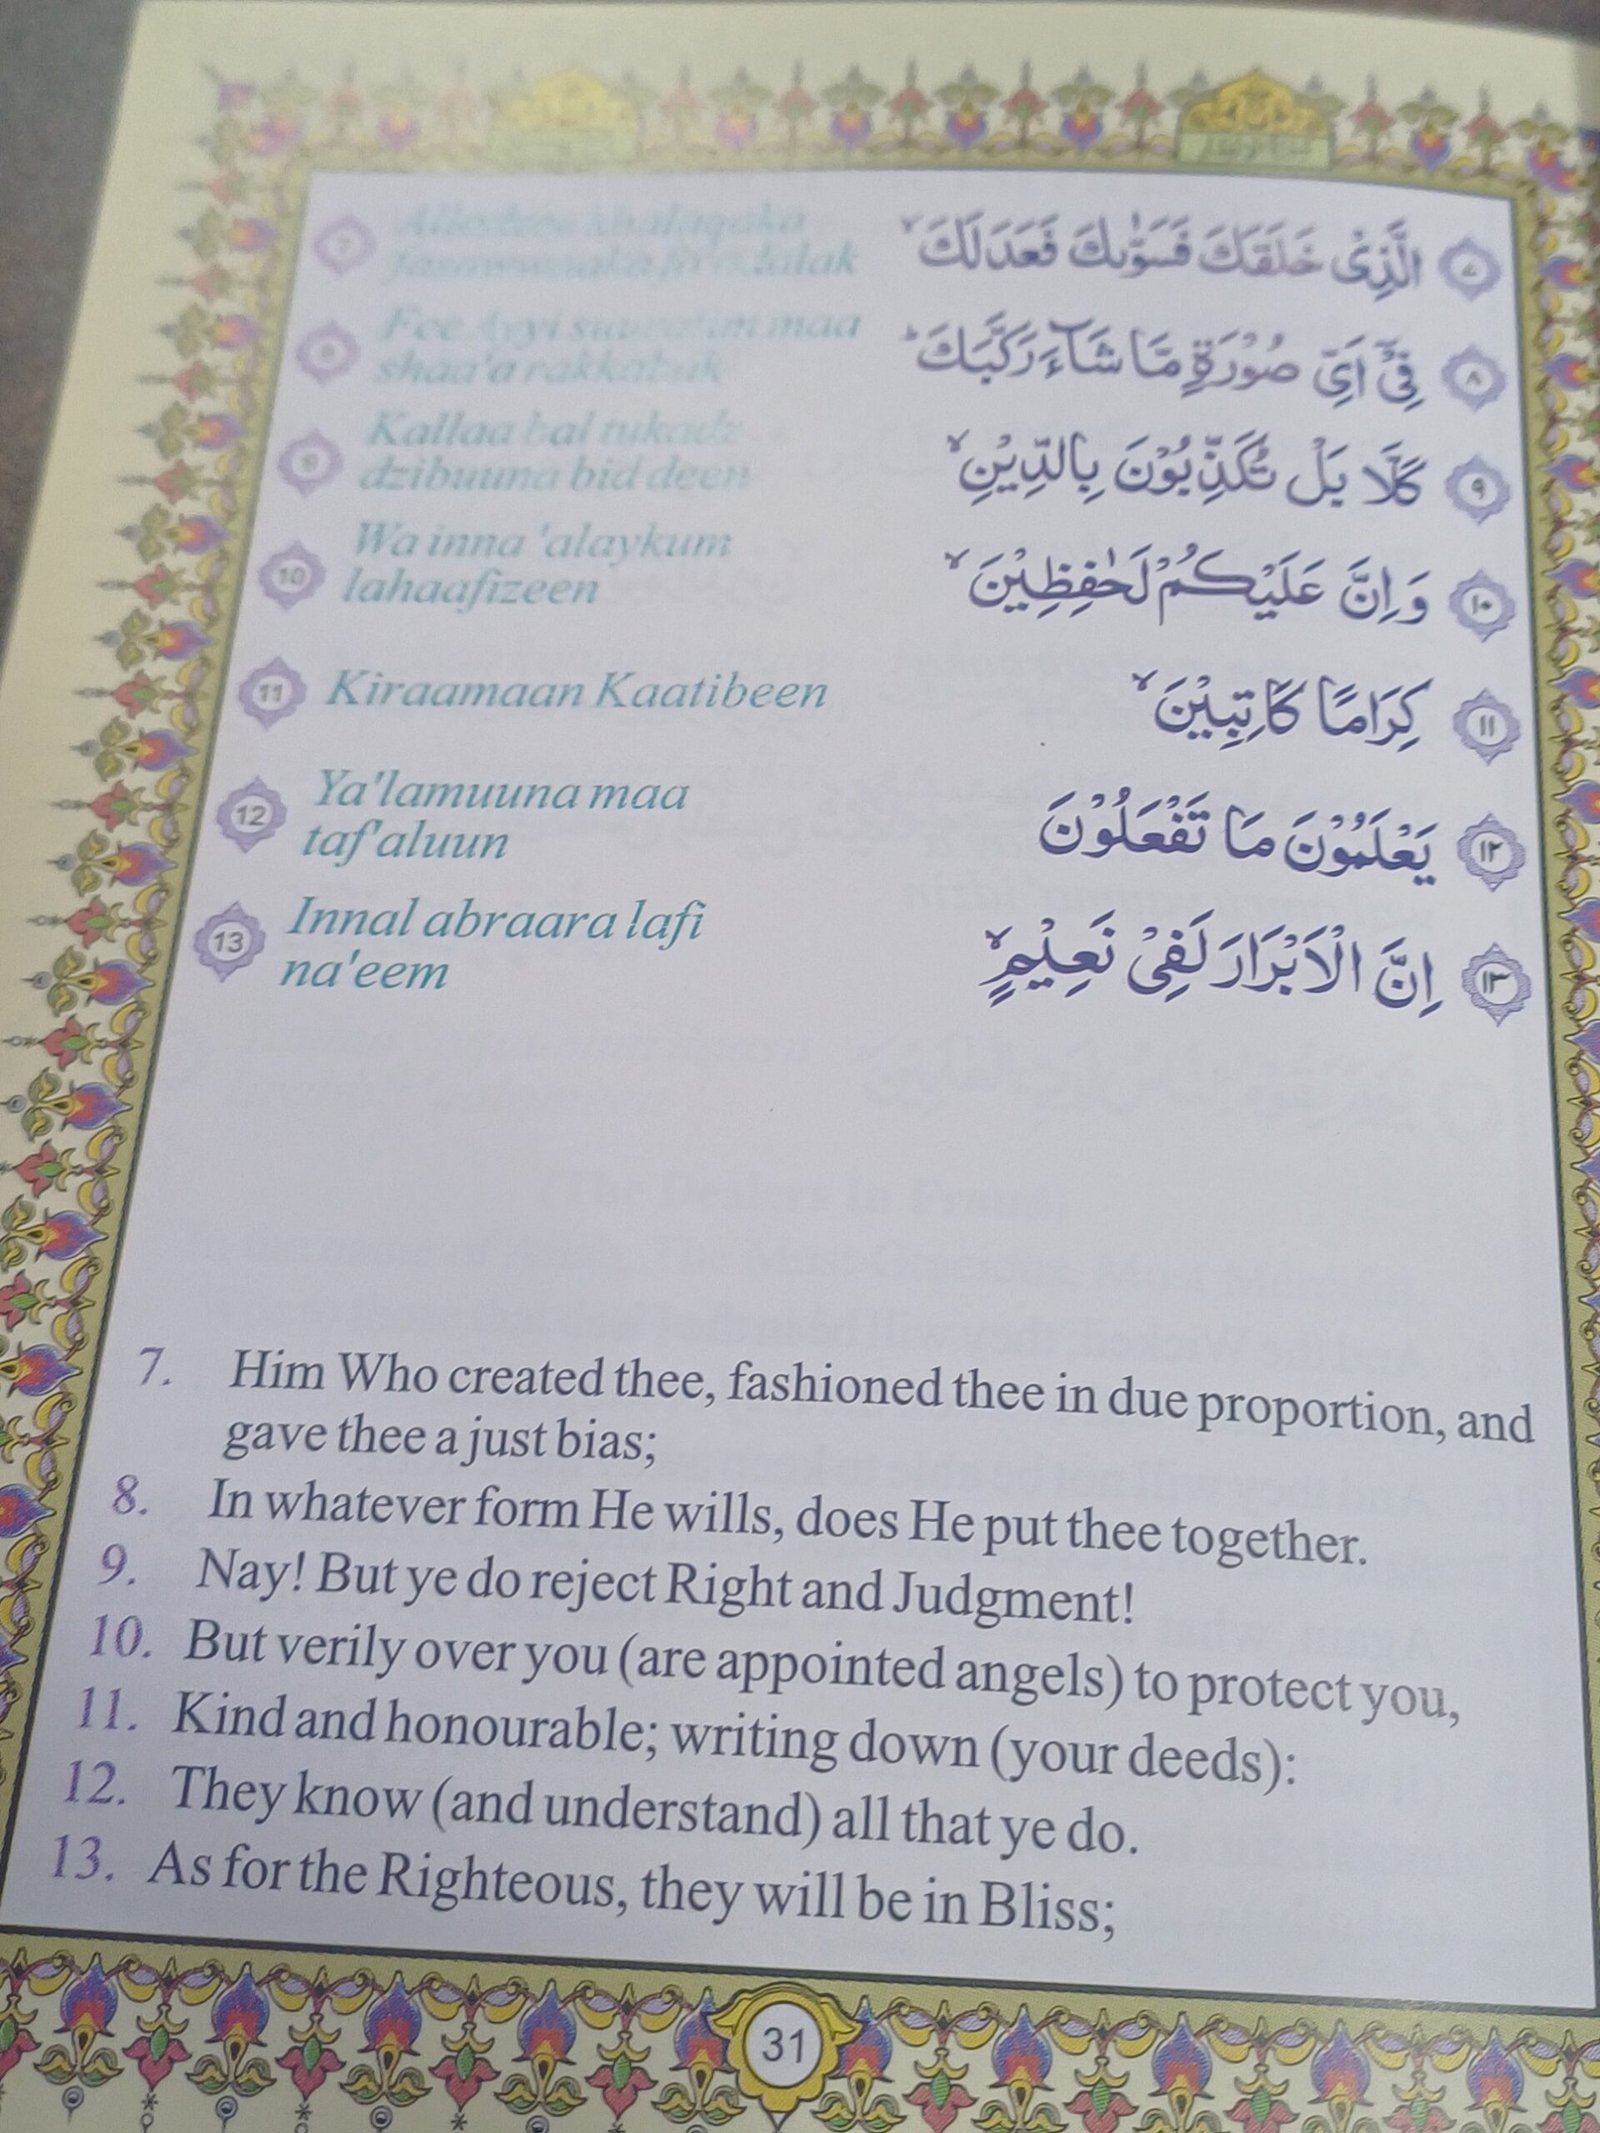 7 Alladzee khalaqaka الَّذِیْ خَلَقَكَ فَسَوّٰىكَ فَعَدَلَكَۙ ۷
fasawwaaka fa'adalak
8 Fee Ayyi suuratim maa فِیْۤ اَیِّ صُوْرَةٍ مَّا شَآءَ رَكَّبَكَؕ ۸
shaa'a rakkabuk
9 Kallaa bal tukadz كَلَّا بَلْ تُكَذِّبُوْنَ بِالدِّیْنِۙ ۹
dzibuuna bid deen
10 Wa inna 'alaykum وَ اِنَّ عَلَیْكُمْ لَحٰفِظِیْنَۙ ۱۰
lahaafizeen
11 Kiraamaan Kaatibeen كِرَامًا كَاتِبِیْنَۙ ۱۱
12 Ya'lamuuna maa یَعْلَمُوْنَ مَا تَفْعَلُوْنَ ۱۲
taf'aluun
13 Innal abraara lafi اِنَّ الْاَبْرَارَ لَفِیْ نَعِیْمٍۙ ۱۳
na'eem
7. Him Who created thee, fashioned thee in due proportion, and
gave thee a just bias;
8. In whatever form He wills, does He put thee together.
9. Nay! But ye do reject Right and Judgment!
10. But verily over you (are appointed angels) to protect you,
11. Kind and honourable; writing down (your deeds):
12. They know (and understand) all that ye do.
13. As for the Righteous, they will be in Bliss;
31